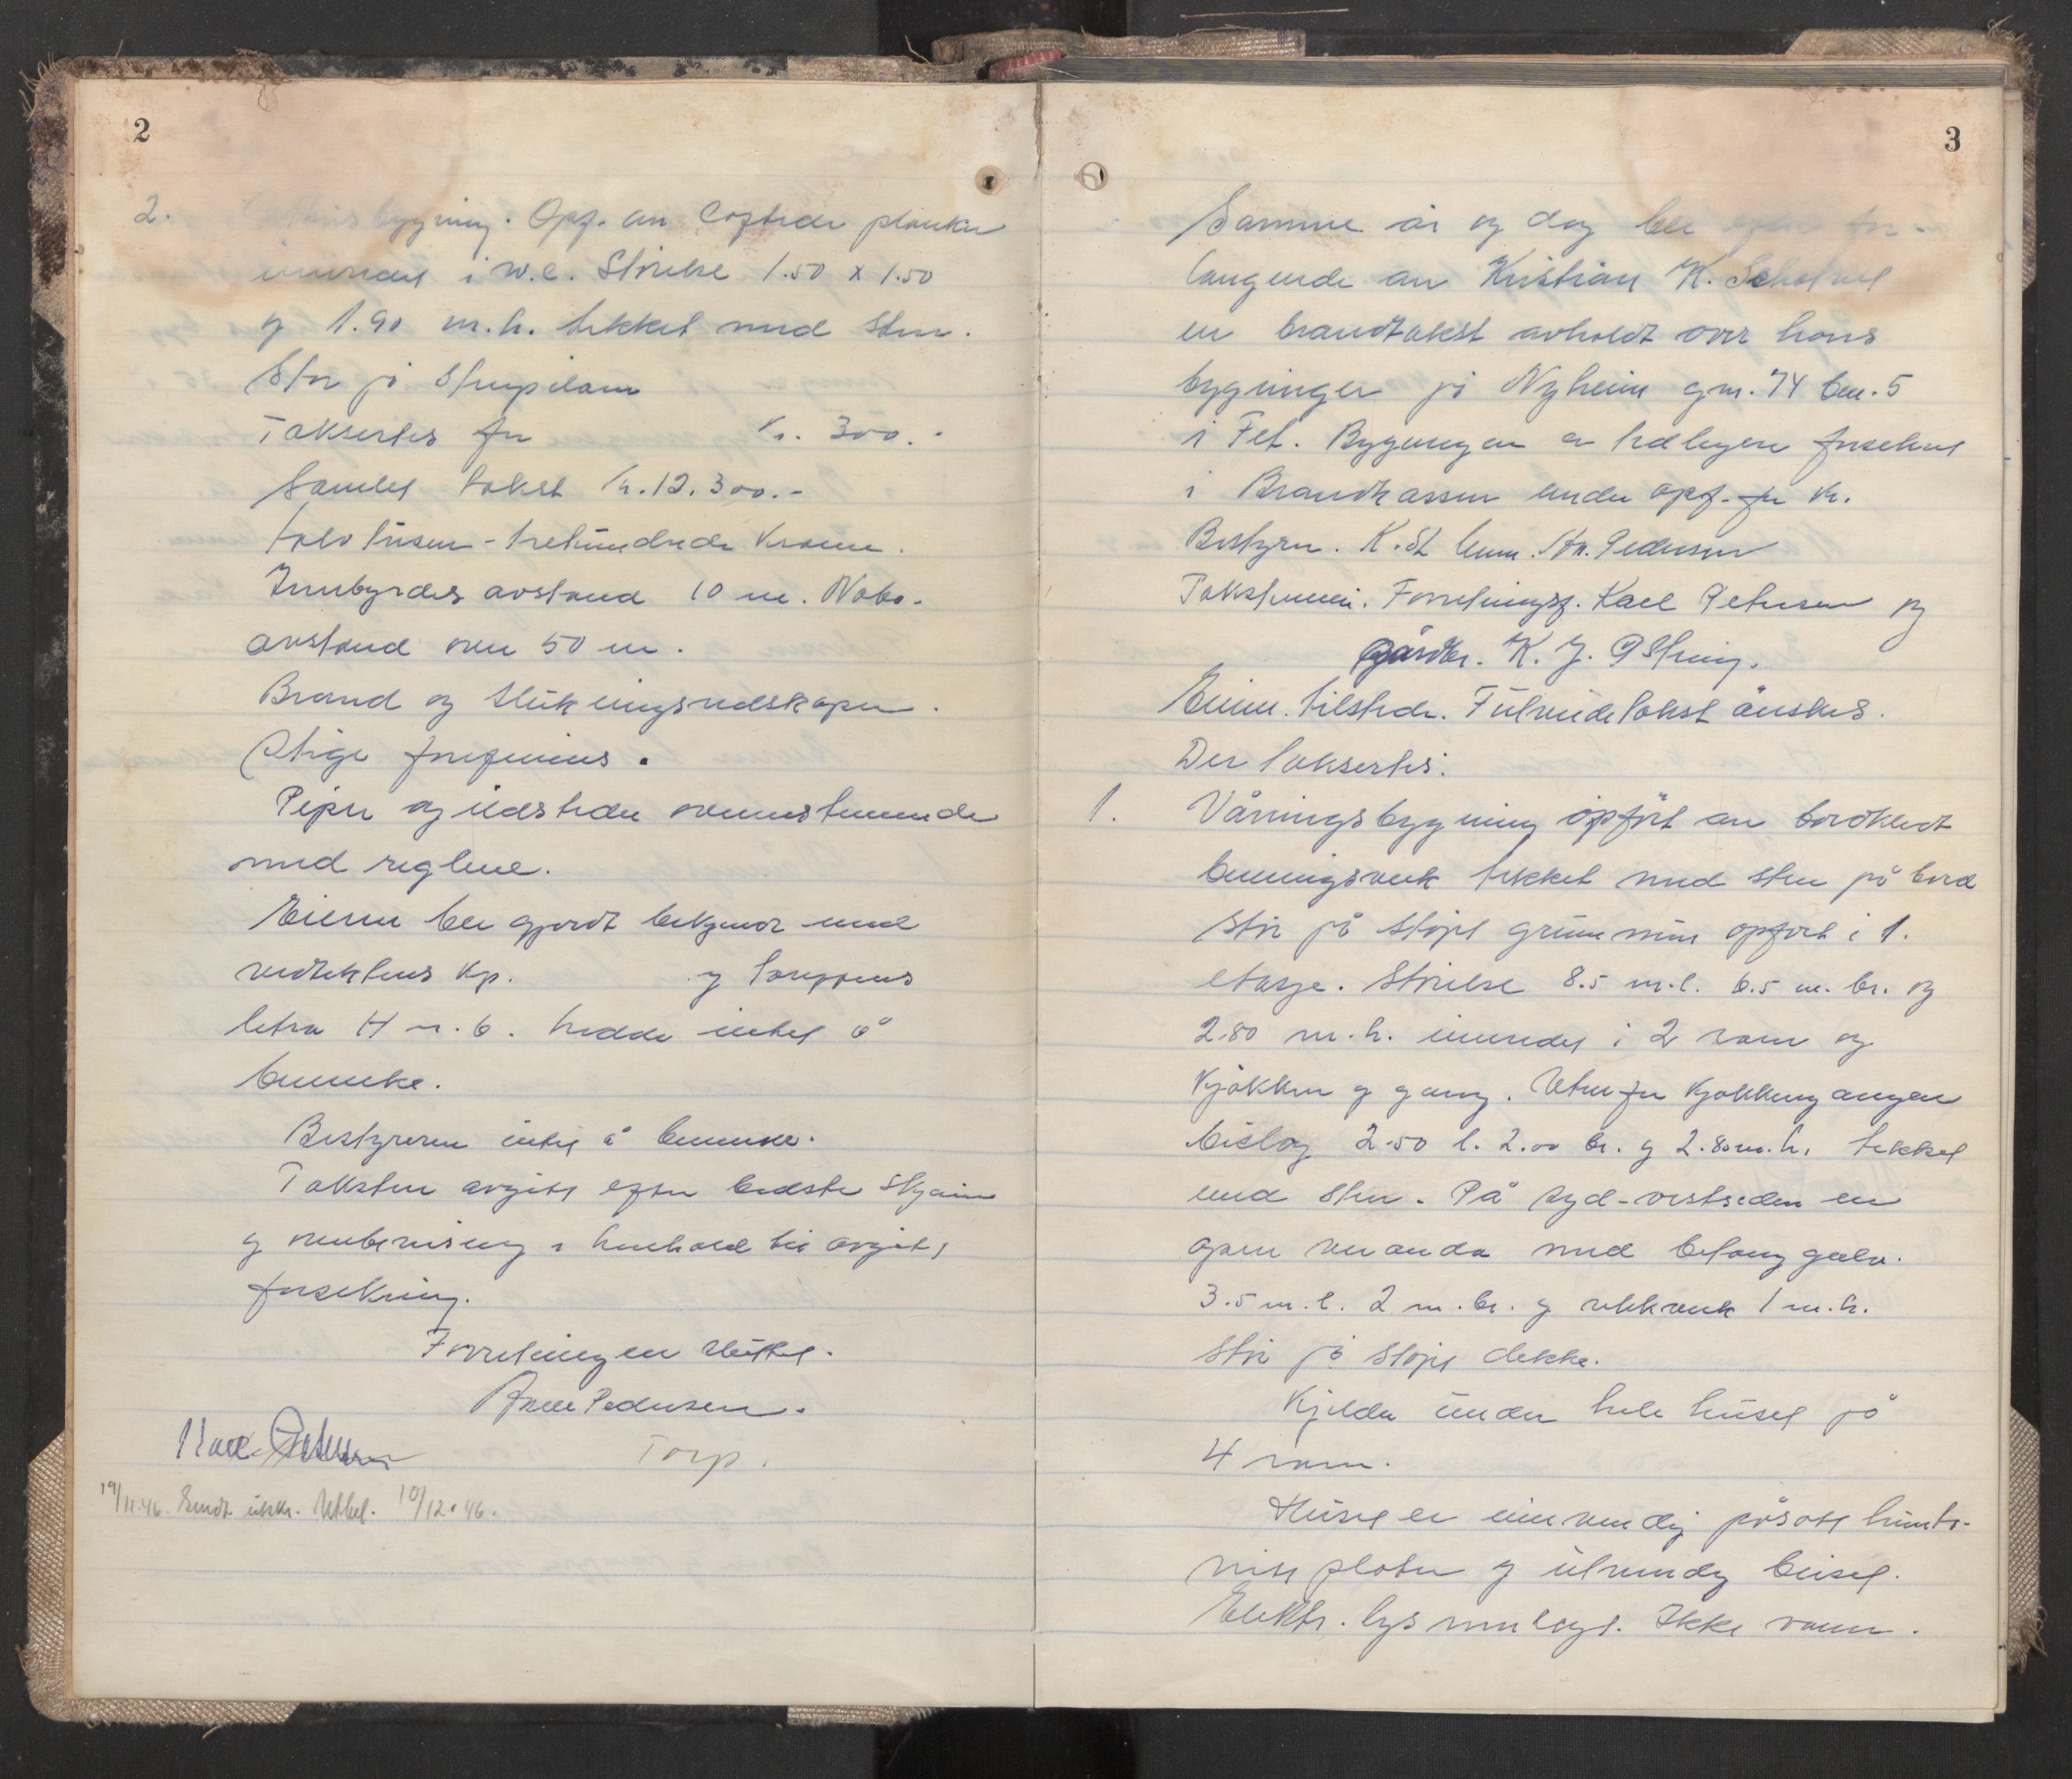 2
2. Uthusbygning. Opf. av loftede planker
innredet i W.C. Størelse 1.50 x 1.50
og 1.90 m.h. tekket med sten.
Står på stenpilarer
Taksertes for Kr. 300.-
Samlet takst Kr. 12.300.-
tolvtusen-trehundrede kroner.
Innbyrdes avstand 10 m. Nabo-
avstand over 50 m.
Brand og slukningsredskaper.
Stige forefinnes.
Piper og ildsteder overensstemmende
med reglene.
Eieren ble gjordt bekjendt med
vedtektens kp. og tariffens
letra H nr. 6. hadde intet å
bemerke.
Bestyreren intet å bemerke.
Taksten avgitt efter bedste skjønn
og overbevisning i henhold til avgitt
forsikring.
Forretningen sluttet.
Pedersen.
Karl Petersen
Torp.
19/11.46. Sendt utskr. Utbet. 10/12.46.
3
Samme år og dag ble efter for-
langende av Kristian K.
en brandtakst avholdt over hans
bygninger på Nyheim gnr. 74 bnr. 5
i Fet. Bygningen er tidligere forsikret
i Brandkassen under opf. for kr.
Bestyrer. K. St. Pedersen
Takstmenn. Forretningsf. Karl Petersen og
Gårdbr. K. J. Østreng.
Eieren tilstede. Fulverditakst ønskes.
Der taksertes:
1. Våningsbygning opført av bordkledt
bindingsverk tekket med sten på bord
står på støpt grunnmur opført i 1.
etasje. Størelse 8.5 m.l. 6.5 m. br. og
2.80 m.h. innredet i 2 rom og
kjøkken og gang. Utenfor kjøkkengangen
bislag 2.50 l. 2.00 br. og 2.80 m.h. tekket
med sten. På syd-vestsiden en
åpen veranda med betong gulv.
3.5 m.l. 2 m. br. og rekkverk 1 m.h.
står på støpt dekke.
Kjelder under hele huset på
4 rom.
Huset er innvendig påsatt hunto-
nitt plater og utvendig beiset.
Elektr. lys innlagt. Ikke vann.